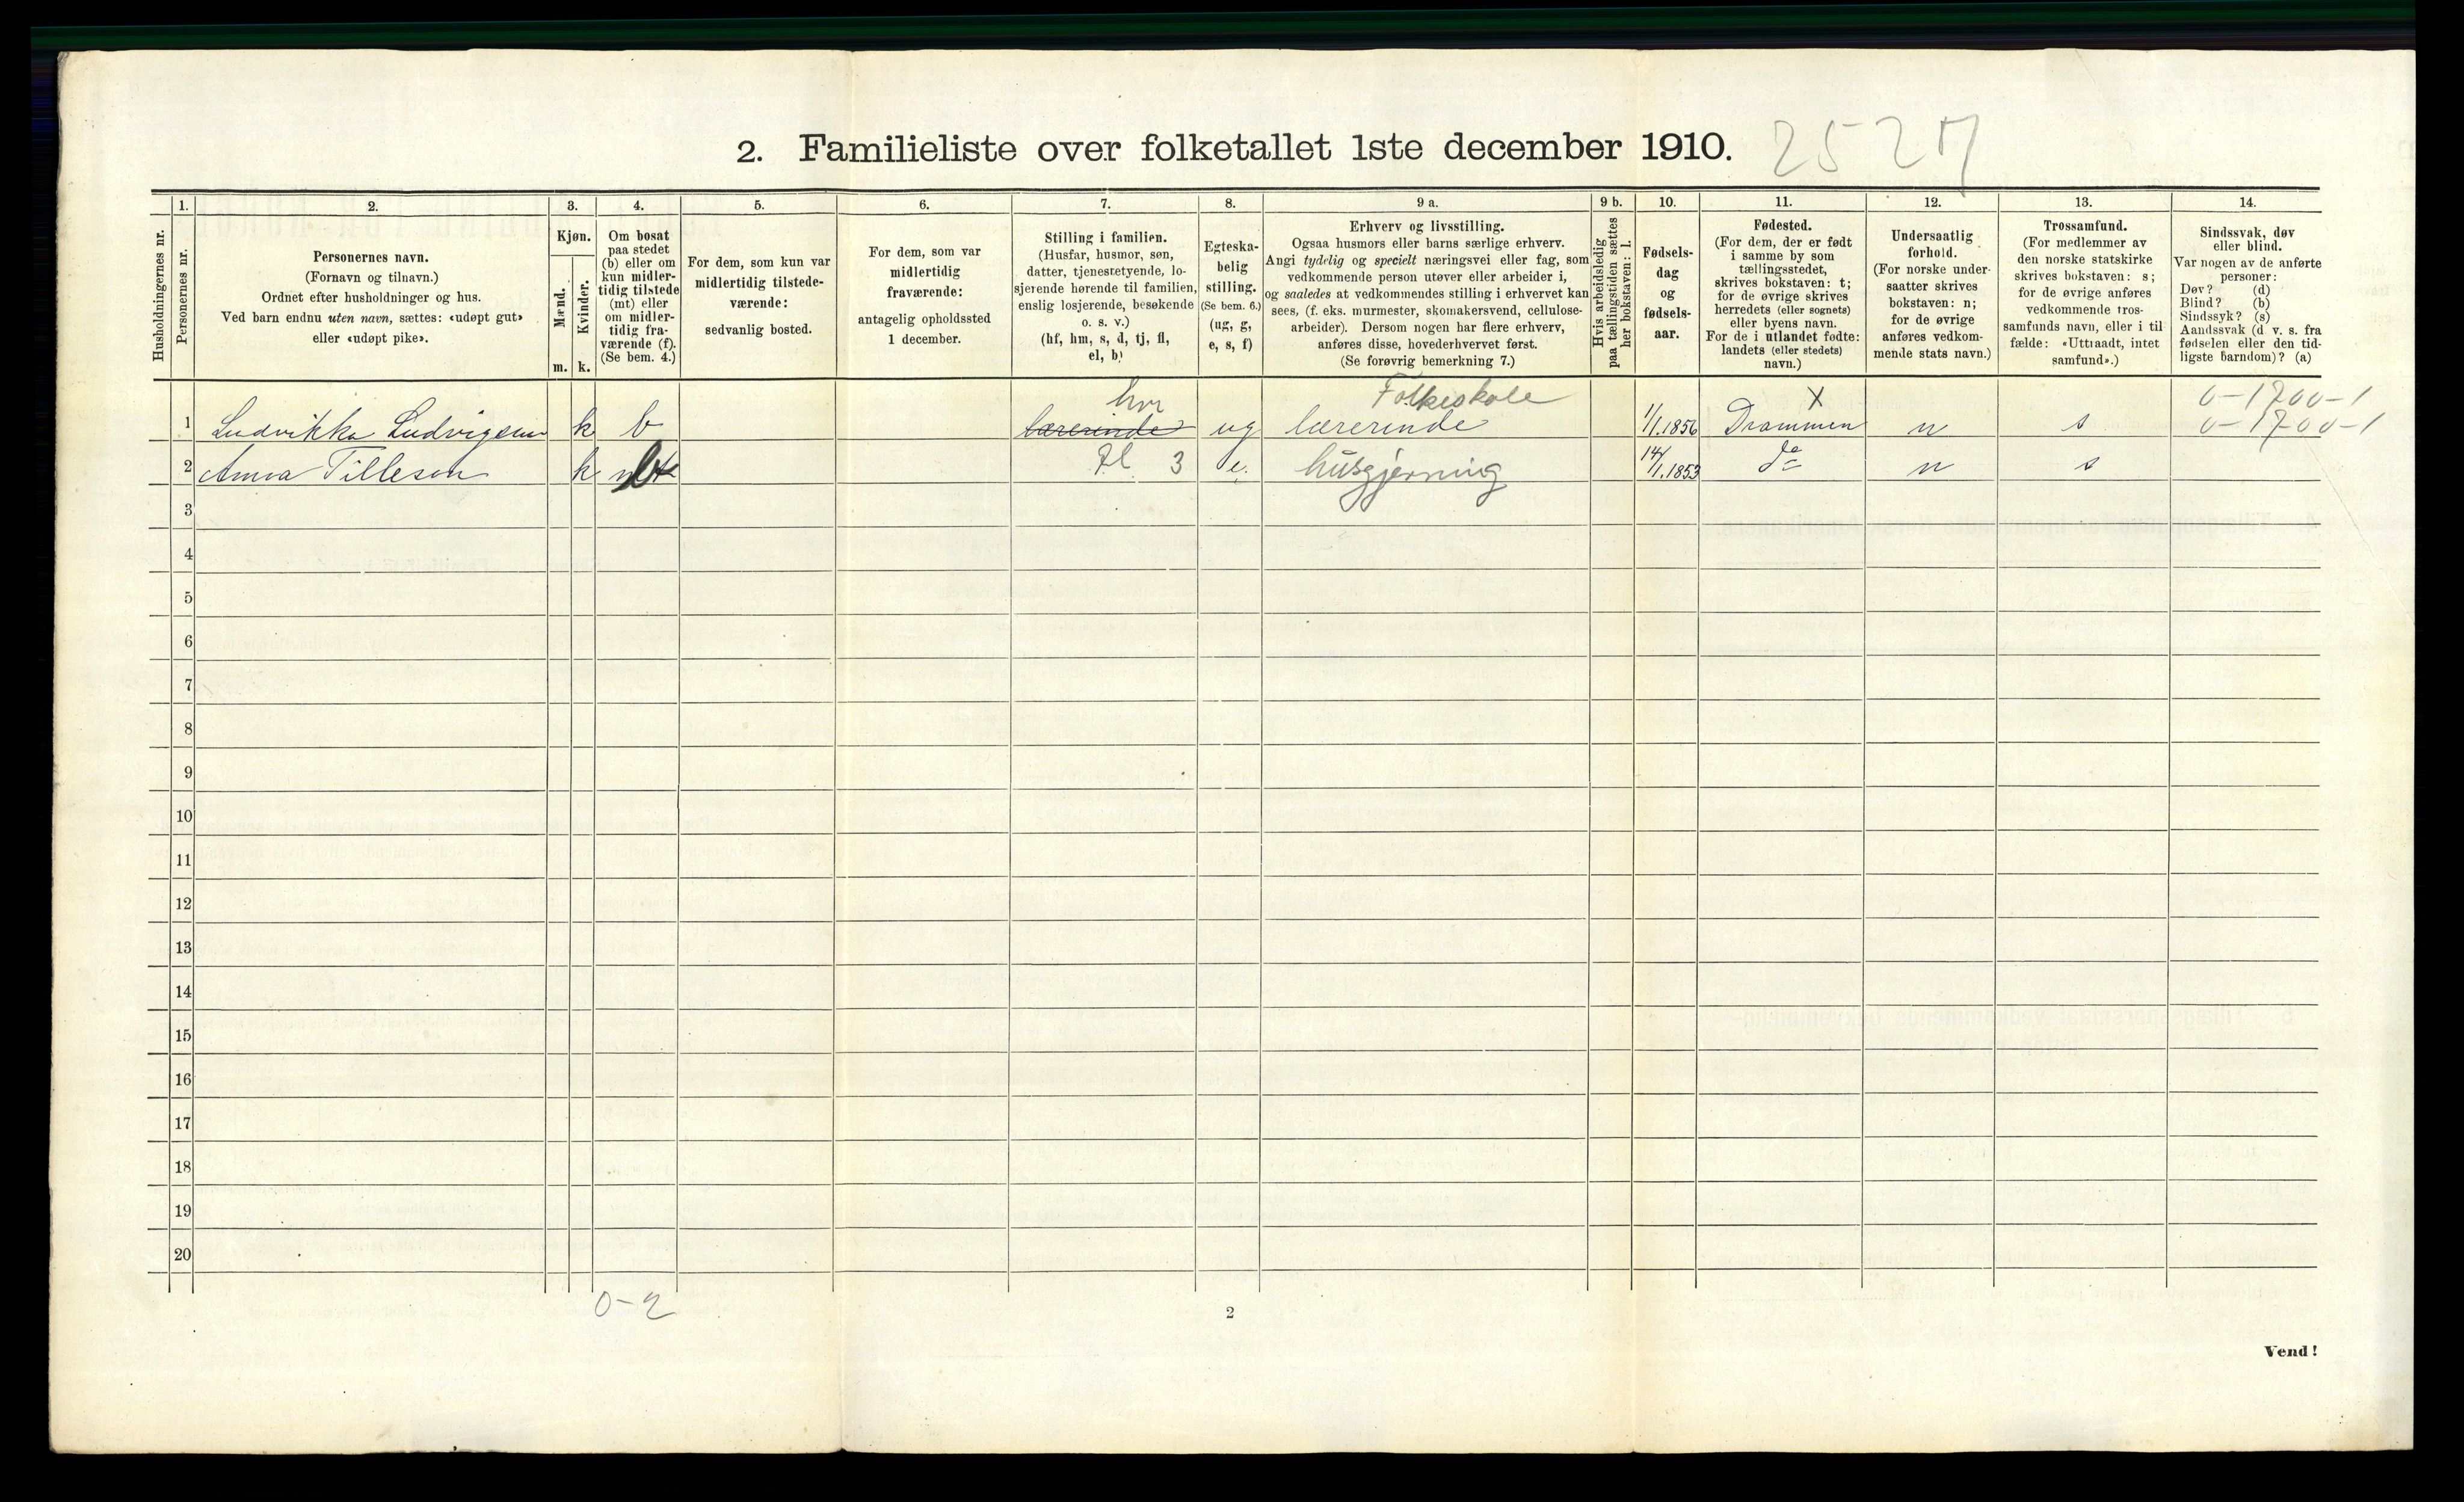 2. Familieliste over folketallet 1ste december 1910. 2527
Husholdningernes nr.
1.
Personernes nr.
2.
Personernes navn.
(Fornavn og tilnavn.)
Ordnet efter husholdninger og hus.
Ved barn endnu uten navn, sættes: «udøpt gut»
eller «udøpt pike».
3.
Kjøn.
Mænd.
Kvinder.
m. k.
4.
Om bosat
paa stedet
(b) eller om
kun midler-
tidig tilstede
(mt) eller
om midler-
tidig fra-
værende (f).
(Se bem. 4.)
5.
For dem, som kun var
midlertidig tilstede-
værende:
sedvanlig bosted.
6.
For dem, som var
midlertidig
fraværende:
antagelig opholdssted
1 december.
7.
Stilling i familien.
(Husfar, husmor, søn,
datter, tjenestetyende, lo-
sjerende hørende til familien,
enslig losjerende, besøkende
o. s. v.)
(hf, hm, s, d, tj, fl,
el, b)
8.
Egteska-
belig
stilling.
(Se bem. 6.)
(ug, g,
e, s, f)
9 a.
Erhverv og livsstilling.
Ogsaa husmors eller barns særlige erhverv.
Angi tydelig og specielt næringsvei eller fag, som
vedkommende person utøver eller arbeider i,
og saaledes at vedkommendes stilling i erhvervet kan
sees, (f. eks. murmester, skomakersvend, cellulose-
arbeider). Dersom nogen har flere erhverv,
anføres disse, hovederhvervet først.
(Se forøvrig bemerkning 7.)
9 b.
Hvis arbeidsledig
paa tællingstiden sættes
her bokstaven: l.
10.
Fødsels-
dag
og
fødsels-
aar.
11.
Fødested.
(For dem, der er født
i samme by som
tællingsstedet,
skrives bokstaven: t;
for de øvrige skrives
herredets (eller sognets)
eller byens navn.
For de i utlandet fødte:
landets (eller stedets)
navn.)
12.
Undersaatlig
forhold.
(For norske under-
saatter skrives
bokstaven: n;
for de øvrige
anføres vedkom-
mende stats navn.)
13.
Trossamfund.
(For medlemmer av
den norske statskirke
skrives bokstaven: s;
for de øvrige anføres
vedkommende tros-
samfunds navn, eller i til
fælde: «Uttraadt, intet
samfund».)
14.
Sindssvak, døv
eller blind.
Var nogen av de anførte
personer:
Døv? (d)
Blind? (b)
Sindssyk? (s)
Aandssvak (d v. s. fra
fødselen eller den tid-
ligste barndom)? (a)
hm Folkeskole X 0-1700-1
1 Ludvikka Ludvigsen k b lærerinde ug lærerinde 1/1.1856 Drammen n s 0-1700-1
2 Anna Tilleson k b fl 3 e. husgjerning 14/1.1853 do n s
3
4
5
6
7
8
9
10
11
12
13
14
15
16
17
18
19
20
0-2
2
Vend!